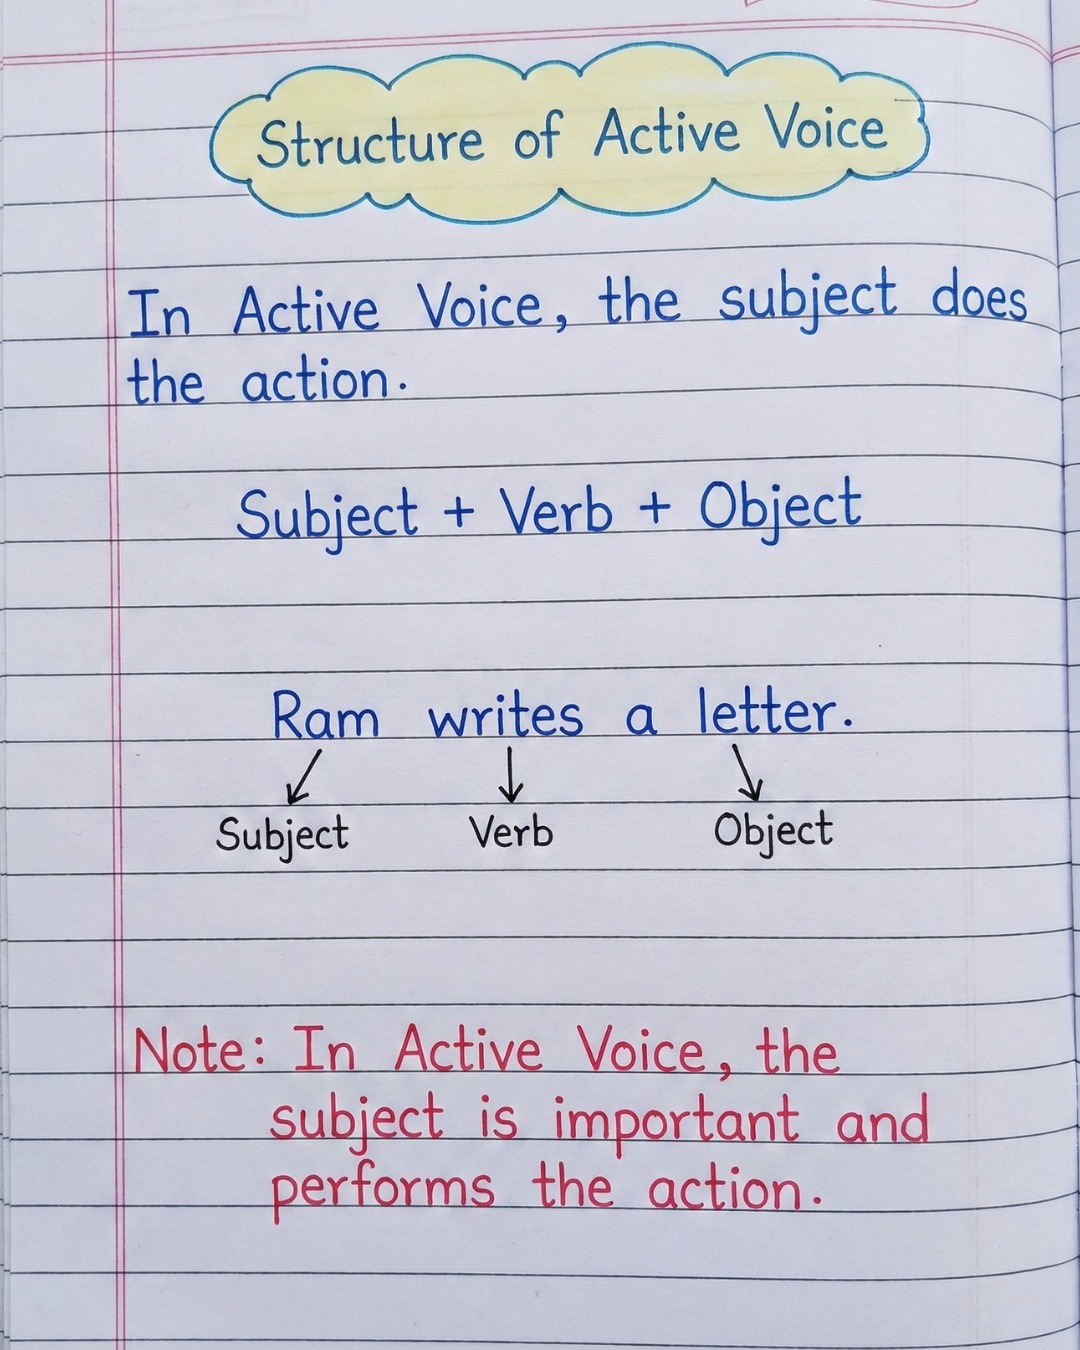 Structure of Active Voice
In Active Voice, the subject does
the action.
Subject + Verb + Object
Ram writes a letter.
Subject Verb Object
Note: In Active Voice, the
subject is important and
performs the action.